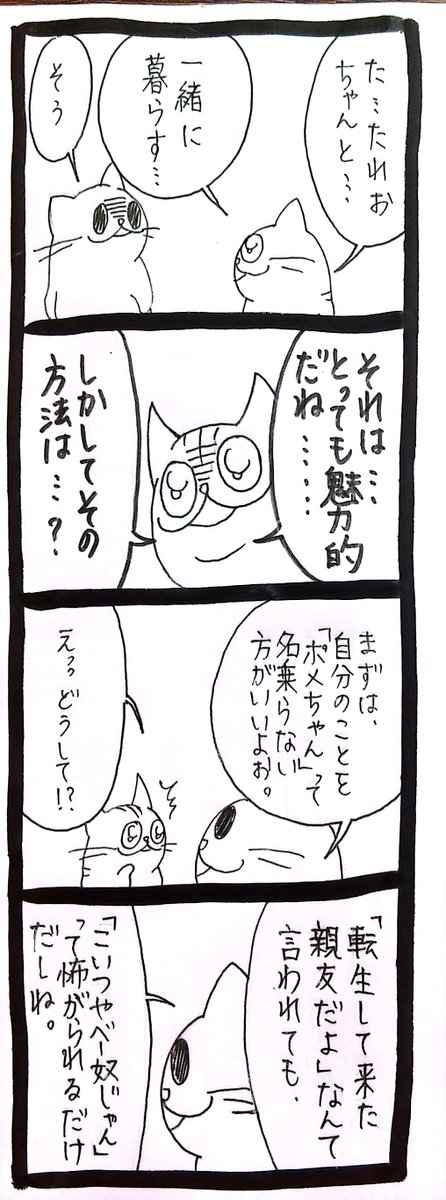 た…たれお
ちゃんと…
一緒に
暮らす…
そう
それは…
とっても魅力的
だね……
しかしてその
方法は…？
まずは、
自分のことを
「ポメちゃん」って
名乗らない
方がいいよぉ。
えっどうして!?
「転生して来た
親友だよ」なんて
言われても、
「こいつやべー奴じゃん」
って怖がられるだけ
だしね。